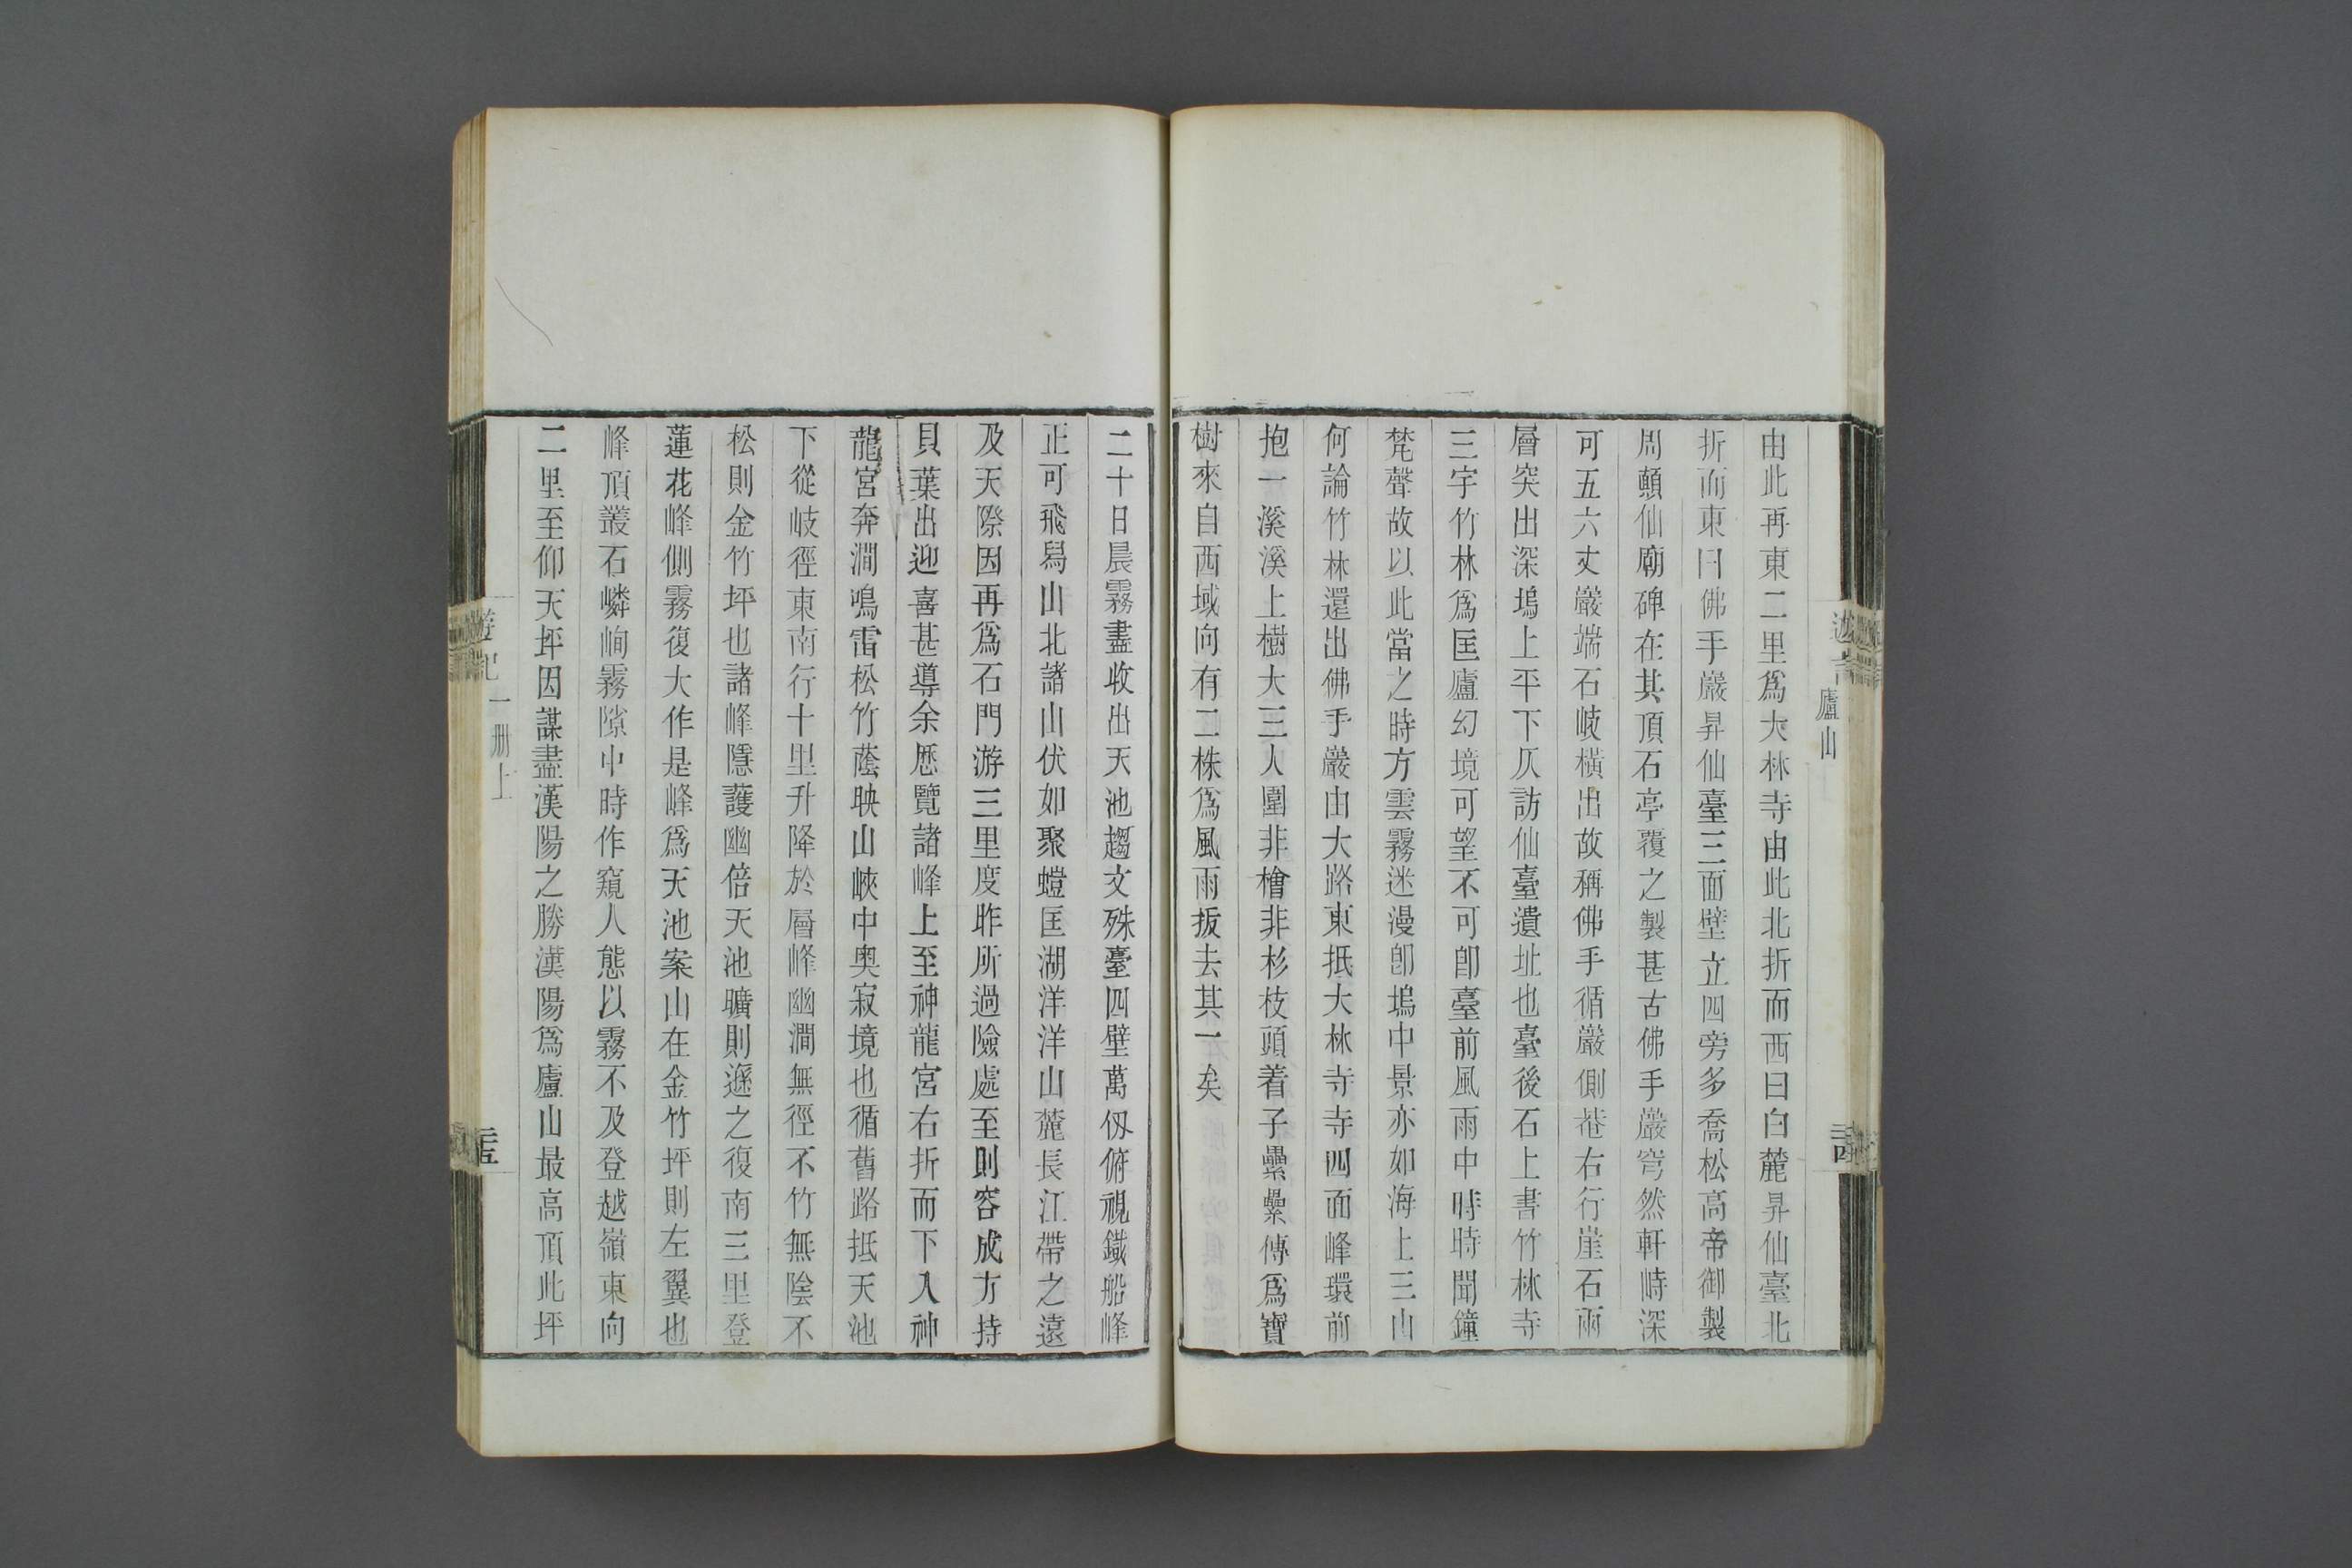 廬山
由此再東二里爲大林寺由此北折而西曰白麓昇仙臺北
折而東曰佛手巖昇仙臺三面壁立四旁多喬松高帝御製
周顛仙廟碑在其頂石亭覆之製甚古佛手巖穹然軒峙深
可五六丈巖端石岐橫出故稱佛手循巖側菴右行崖石兩
層突出深塢上平下仄訪仙臺遺址也臺後石上書竹林寺
三字竹林爲匡廬幻境可望不可卽臺前風雨中時時聞鐘
梵聲故以此當之時方雲霧迷漫卽塢中景亦如海上三山
何論竹林還出佛手巖由大路東抵大林寺寺四面峰環前
抱一溪溪上樹大三人圍非檜非杉枝頭着子纍纍傳爲寶
樹來自西域向有二株爲風雨拔去其一矣
二十日晨霧盡收出天池趨文殊臺四壁萬仞俯視鐵船峰
正可飛舄山北諸山伏如聚螘匡湖洋洋山麓長江帶之遠
及天際因再爲石門游三里度昨所過險處至則容成方持
貝葉出迎喜甚導余歷覽諸峰上至神龍宮右折而下入神
龍宮奔澗鳴雷松竹蔭映山峽中奧寂境也循舊路抵天池
下從岐徑東南行十里升降於層峰幽澗無徑不竹無陰不
松則金竹坪也諸峰隱護幽倍天池曠則遜之復南三里登
蓮花峰側霧復大作是峰爲天池案山在金竹坪則左翼也
峰頂叢石嶙峋霧隙中時作窺人態以霧不及登越嶺東向
二里至仰天坪因謀盡漢陽之勝漢陽爲廬山最高頂此坪
遊記一册上
二十五